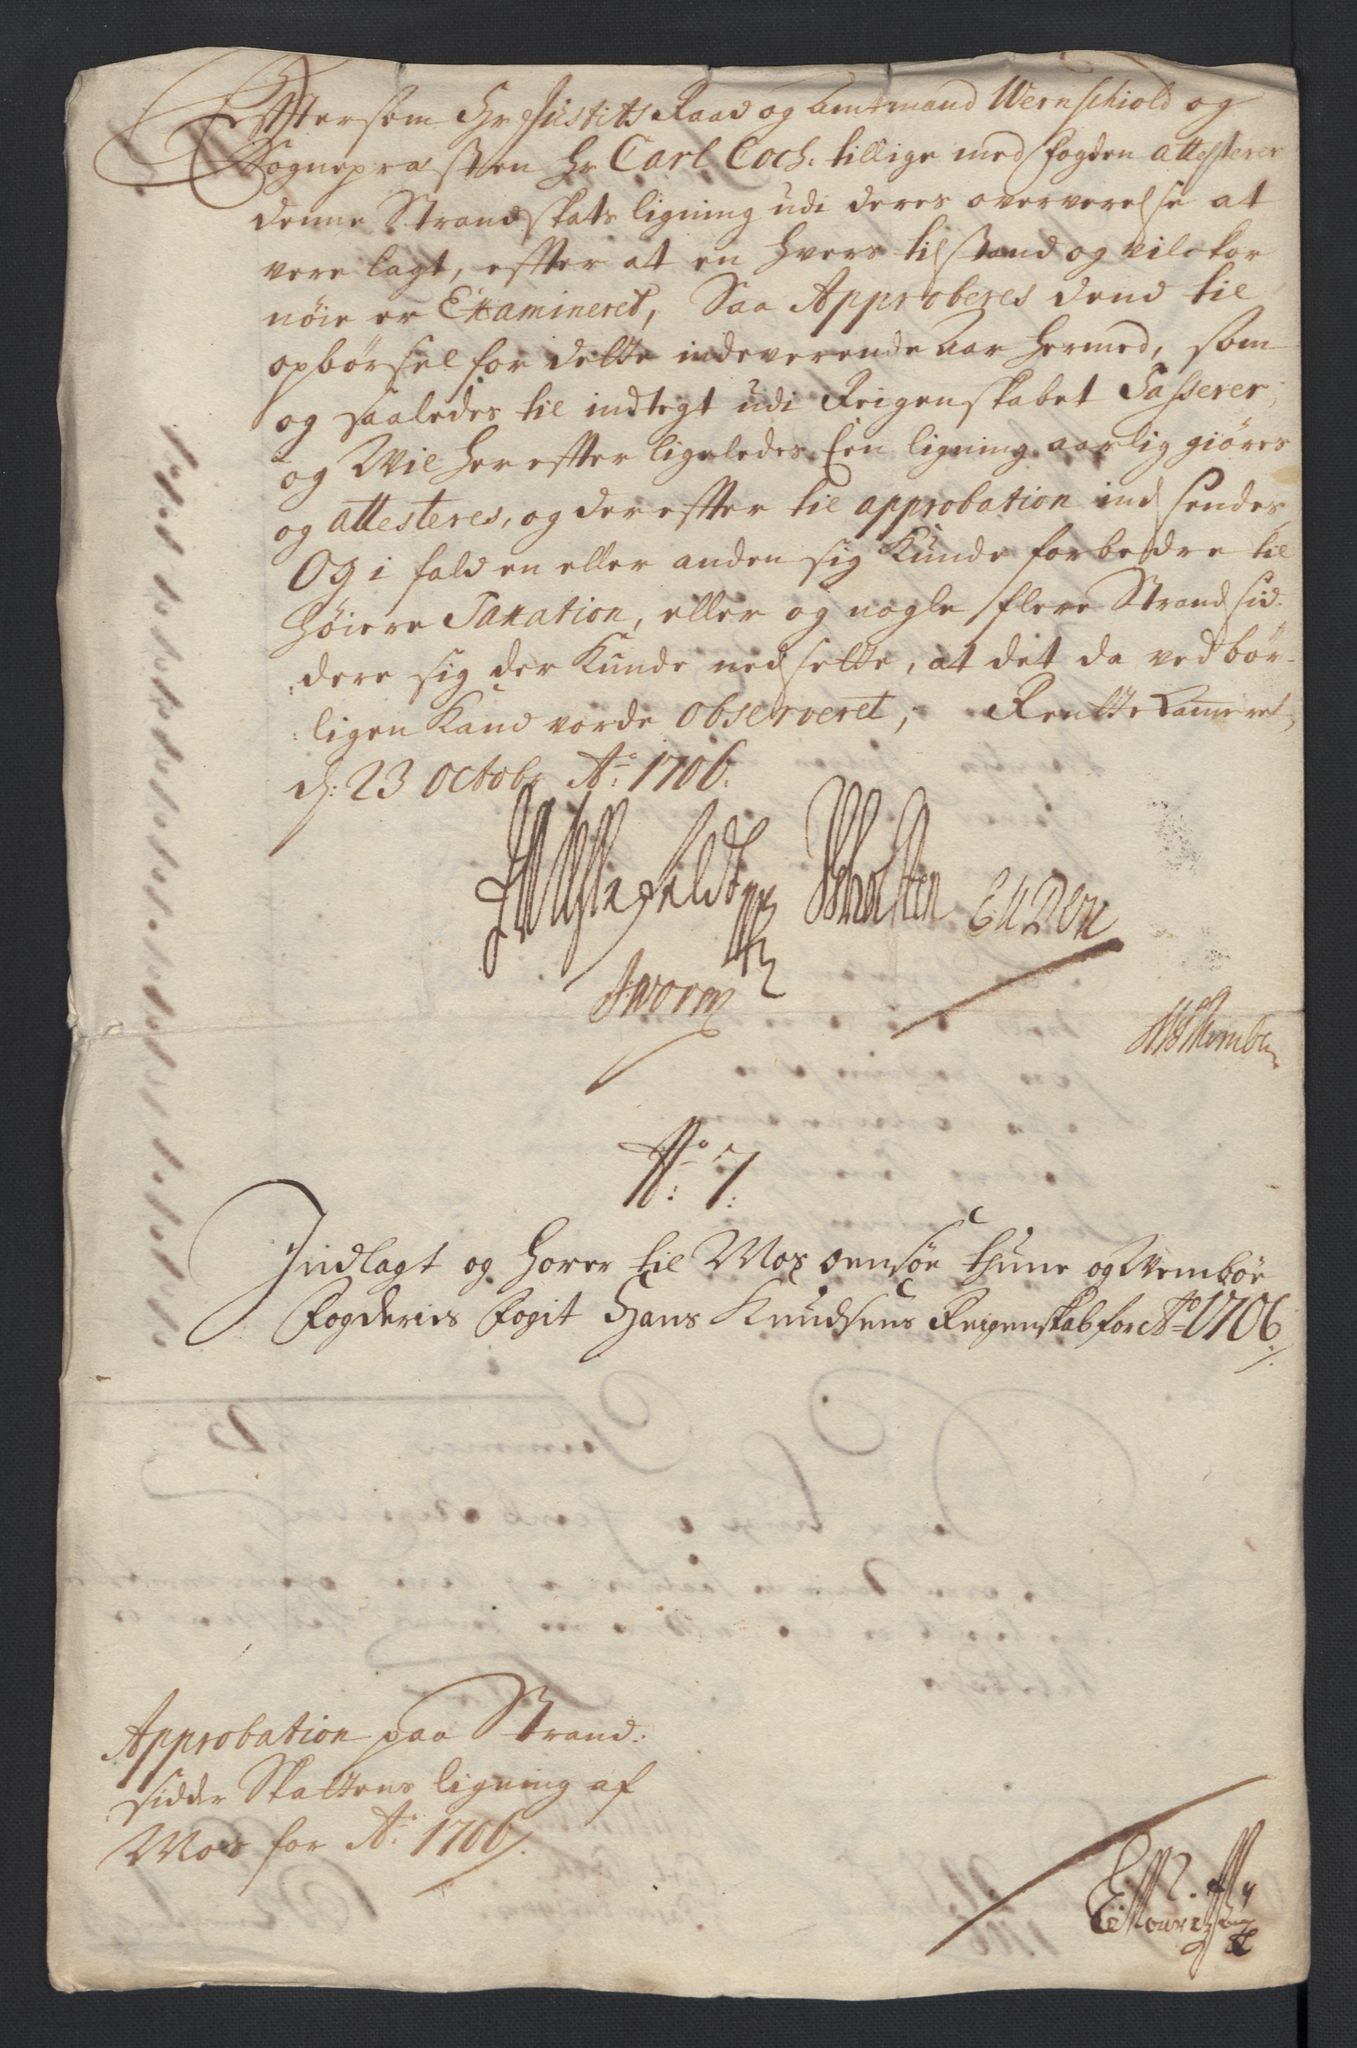 Efftersom Hr Justits Raad og Amtmand Wernschiold og
Sognepræsten Hr Carl Coch. tillige med fogden attesterer
denne Strandskats ligning udi deres oververelse at
vere lagt, effter at en hvers tilstand og vilckor
nöie er Examineret, Saa Approberes dend til
opbörsel for dette indeverende Aar hermed, som
og saaledes til indtegt udi Reigenskabet Passerer;
og Wil her effter ligeledes Een ligning aarlig giöres
og attesteres, og der effter til approbation ind sendes,
Og i fald en eller anden sig Kunde forbedre til
höiere Taxation, eller og nogle flere Strand sid-
dere sig der Kunde nedsette, at det da vedbör-
ligen Kand vorde observeret, Rentte Cameret,
d: 23 octobr Ao: 1706.
Worm
No: 7:
Indlagt og hörer til Mos onsöe thune og Wemböe
Fogderies Fogit Hans Knudsens Reigenskab for Ao 1706
Approbation paa Strand-
sidder Skattens ligning af
Mos for Ao: 1706.